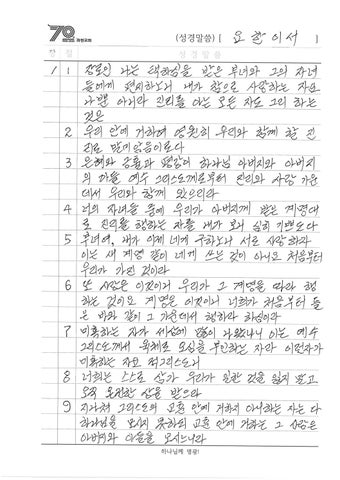 70 (성경말씀) [ 요한이서 ]
장 절 성경말씀
1 1 장로인 나는 택하심을 받은 부녀와 그의 자녀
들에게 편지하노니 내가 참으로 사랑하는 자요
나뿐 아니라 진리를 아는 모든 자도 그리 하는
것은
2 우리 안에 거하여 영원히 우리와 함께 할 진
리로 말미암음이로다
3 은혜와 긍휼과 평강이 하나님 아버지와 아버지
의 아들 예수 그리스도께로부터 진리와 사랑 가운
데서 우리와 함께 있으리라
4 너의 자녀들 중에 우리가 아버지께 받은 계명대
로 진리를 행하는 자를 내가 보니 심히 기쁘도다
5 부녀여, 내가 이제 네게 구하노니 서로 사랑하자
이는 새 계명 같이 네게 쓰는 것이 아니요 처음부터
우리가 가진 것이라
6 또 사랑은 이것이니 우리가 그 계명을 따라 행
하는 것이요 계명은 이것이니 너희가 처음부터 들
은 바와 같이 그 가운데서 행하라 하심이라
7 미혹하는 자가 세상에 많이 나왔나니 이는 예수
그리스도께서 육체로 오심을 부인하는 자라 이런자가
미혹하는 자요 적그리스도니
8 너희는 스스로 삼가 우리가 일한 것을 잃지 말고
오직 온전한 상을 받으라
9 지나쳐 그리스도의 교훈 안에 거하지 아니하는 자는 다
하나님을 모시지 못하되 교훈 안에 거하는 그 사람은
아버지와 아들을 모시느니라
하나님께 영광!